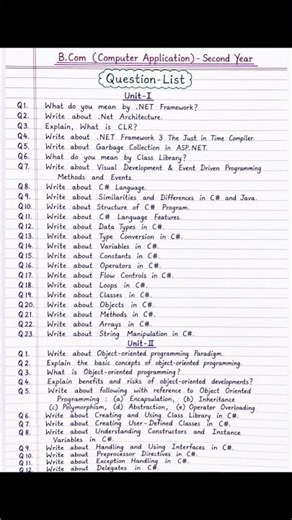 B.Com (Computer Application) - Second Year
Question-List
Unit-I
Q1. What do you mean by .NET Framework?
Q2. Write about .Net Architecture.
Q3. Explain, What is CLR?
Q4. Write about .NET Framework 3 The Just in Time Compiler.
Q5. Write about Garbage Collection in ASP.NET.
Q6. What do you mean by Class Library?
Q7. Write about Visual Development & Event Driven Programming
Methods and Events.
Q8. Write about C# Language.
Q9. Write about Similarities and Differences in C# and Java.
Q10. Write about Structure of C# Program.
Q11. Write about C# Language Features.
Q12. Write about Data Types in C#.
Q13. Write about Type Conversion in C#.
Q14. Write about Variables in C#.
Q15. Write about Constants in C#.
Q16. Write about Operators in C#.
Q17. Write about Flow Controls in C#.
Q18. Write about Loops in C#.
Q19. Write about Classes in C#.
Q20. Write about Objects in C#.
Q21. Write about Methods in C#.
Q22. Write about Arrays in C#.
Q23. Write about String Manipulation in C#.
Unit-II
Q1. Write about Object-oriented programming Paradigm.
Q2. Explain the basic concepts of object-oriented programming.
Q3. What is Object-oriented programming?
Q4. Explain benefits and risks of object-oriented developments?
Q5. Write about following with reference to Object Oriented
Programming : (a) Encapsulation, (b) Inheritance
(c) Polymorphism, (d) Abstraction, (e) Operator Overloading
Q6. Write about Creating and Using Class Library in C#.
Q7. Write about Creating User-Defined Classes in C#.
Q8. Write about Understanding Constructors and Instance
Variables in C#.
Q9. Write about Handling and Using Interfaces in C#.
Q10. Write about Preprocessor Directives in C#.
Q11. Write about Exception Handling in C#.
Q12. Write about Delegates in C#.